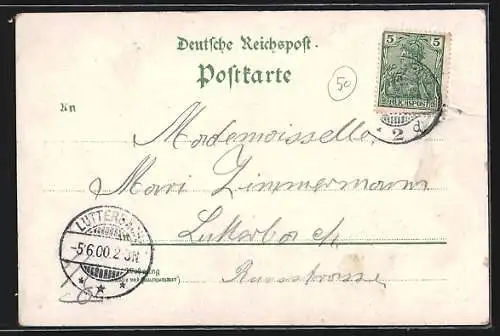 Deutsche Reichspost.
Postkarte
5 5
REICHSPOST
50
An
Mademoisselle
Mari Zimmermann
Lutterbach
LUTTERBACH
-5/6.00.2-3N
2 d
Wohnung